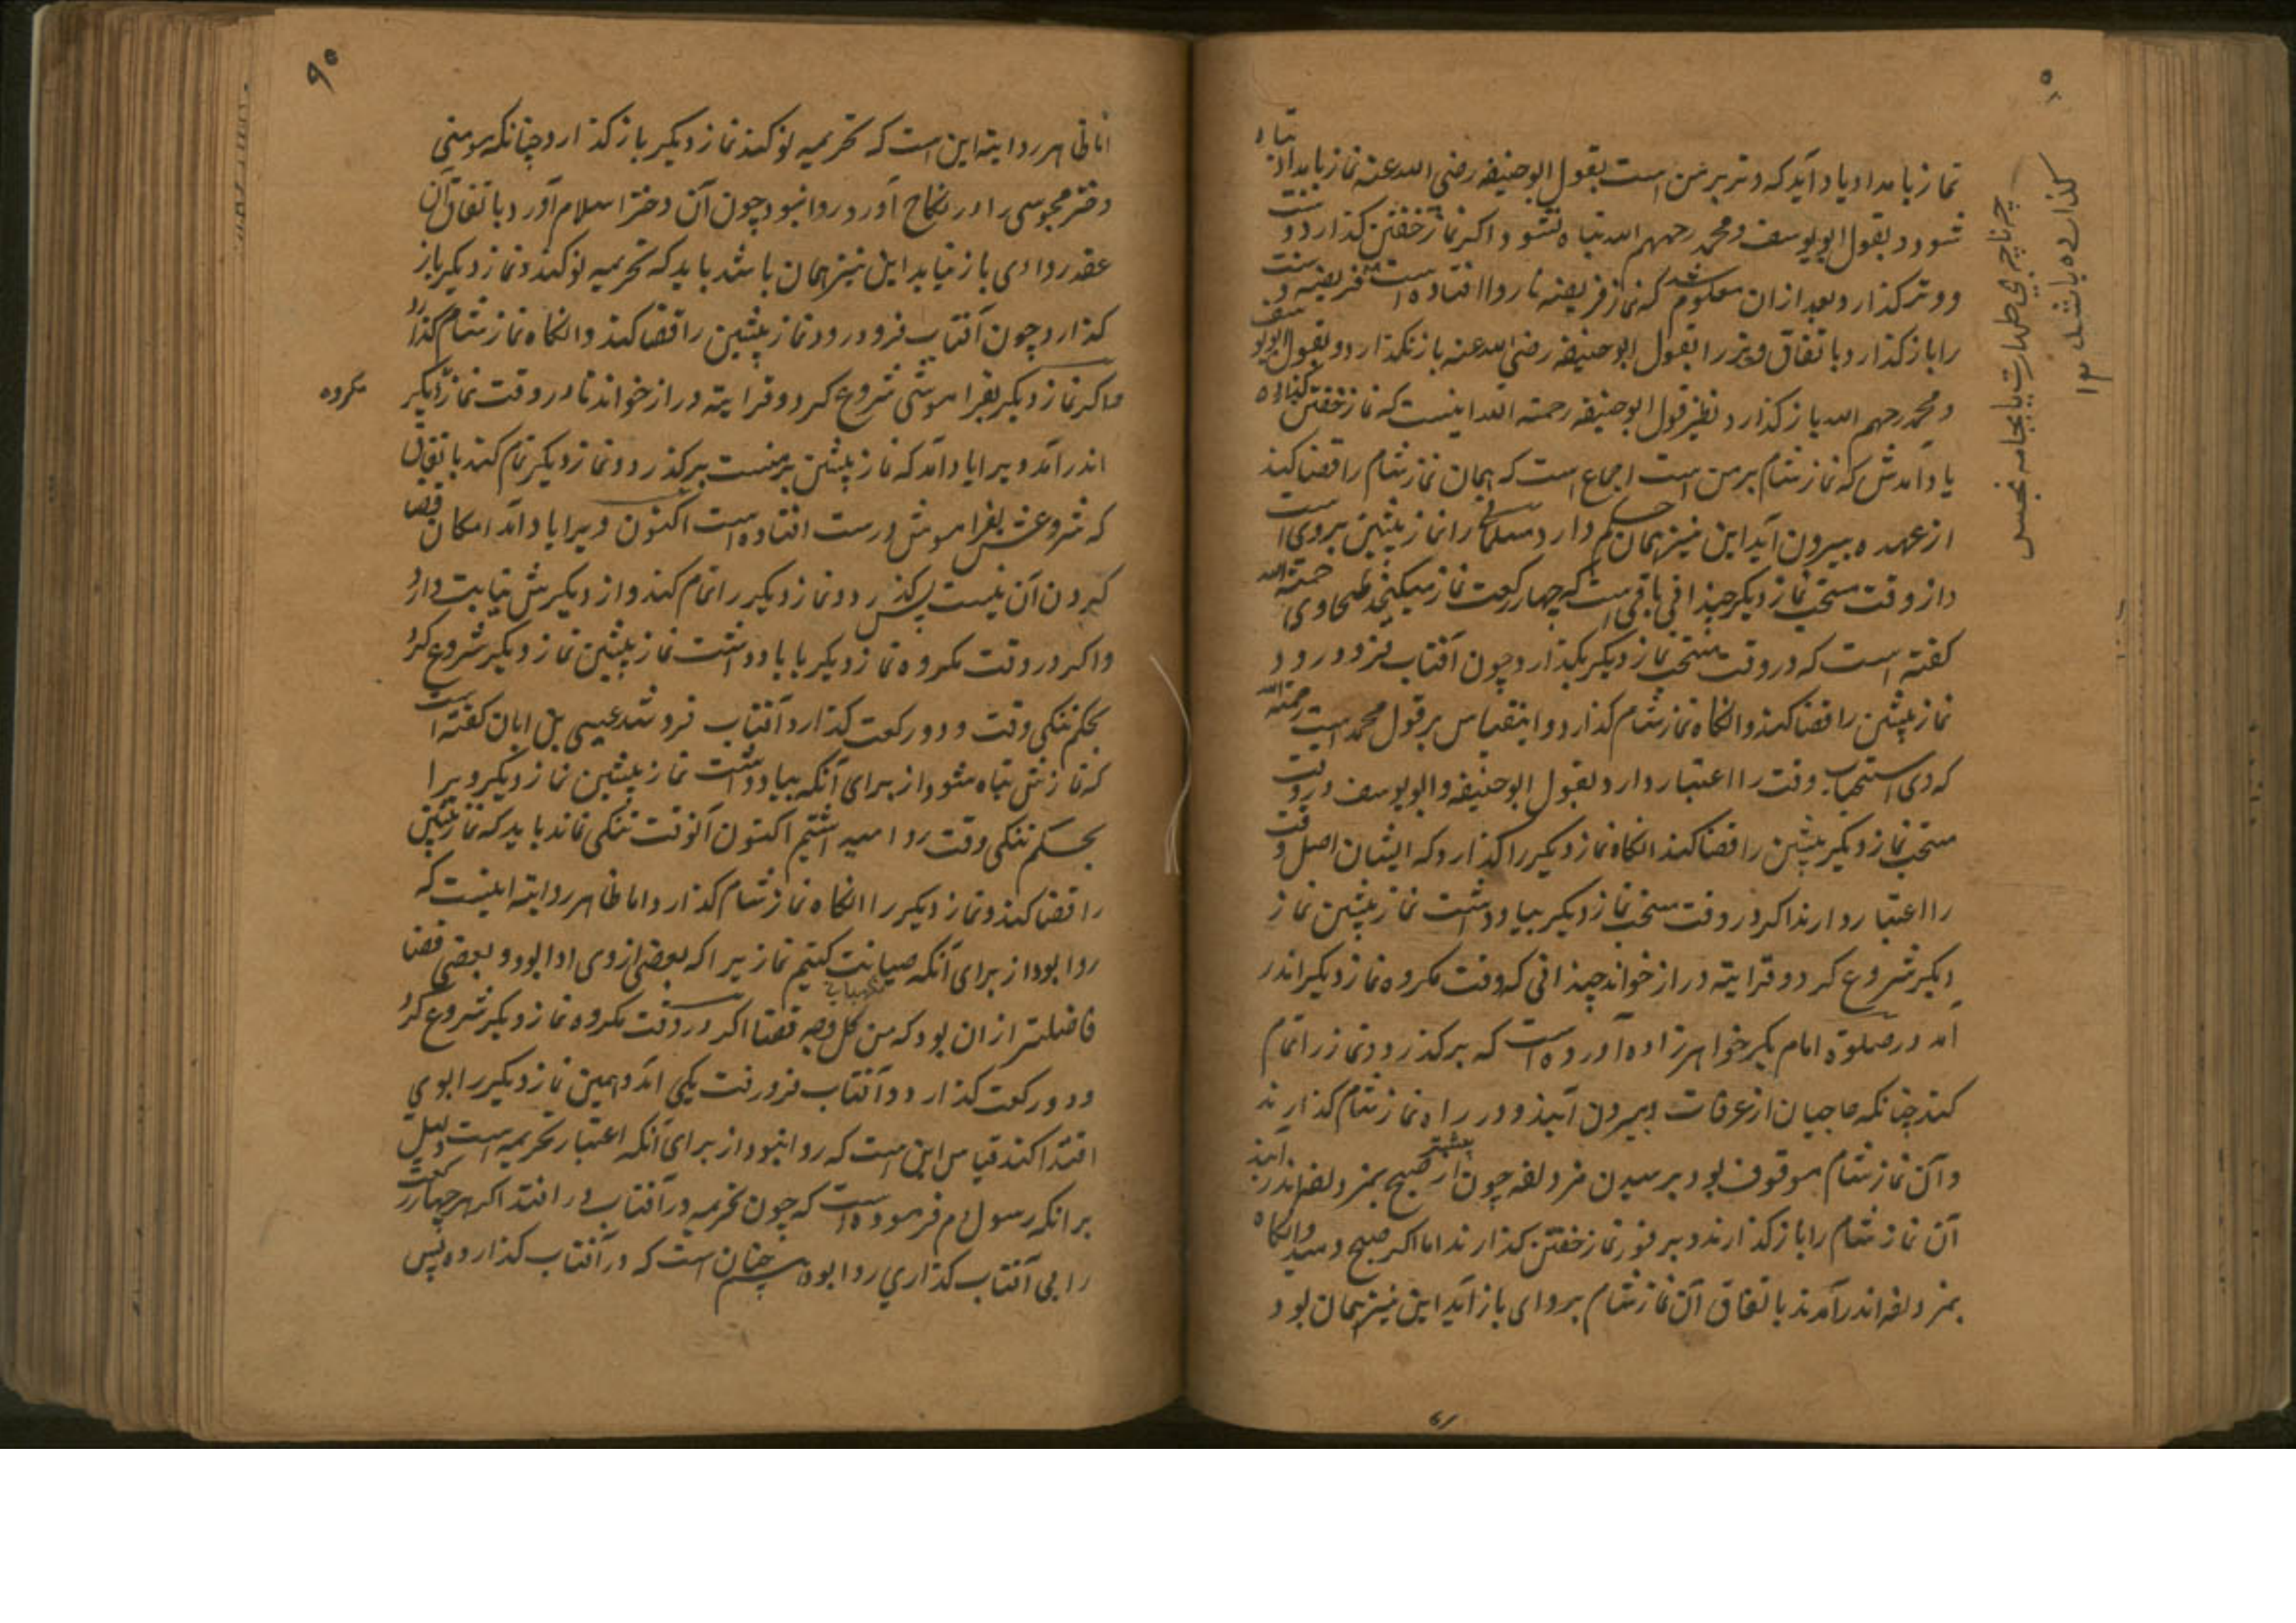 نماز بامداد یاد آید که وتر بر من است بقول ابوحنیفه رضی الله عنه نماز بامداد تباه
شود و بقول ابویوسف و محمد رحمهم الله تباه نشود و اکر نماز خفتن کذارد و سنت
و وتر کذارد بعد ازان معلوم شد که نماز فریضه ناروا افتاده است فریضه و سنت
را باز کذارد باتفاق و وتر را بقول ابوحنیفه رضی الله عنه باز نکذارد و بقول ابویوسف
و محمد رحمهم الله باز کذارد نظیر قول ابوحنیفه رحمته الله اینست که نماز خفتن کذارده
یاد آمدش که نماز شام بر من است اجماع است که همان نماز شام را قضا کند
از عهده بیرون آید این نیز همان حکم دارد مسلمانی را نماز پیشین بروی است
و از وقت مستحب نماز دیکر چندانی باقی است که چهار رکعت نماز میکنجد طحاوی رحمته الله
کفته است که در وقت مستحب نماز دیکر بکذارد چون آفتاب فرو رود
نماز پیشین را قضا کند و انکاه نماز شام کذارد و اینقیاس بر قول محمد است رحمته الله
که وی استحباب وقت را اعتبار دارد بقول ابوحنیفه و ابویوسف در وقت
مستحب نماز دیکر پیشین را قضا کند انکاه نماز دیکر را کذارد که ایشان اصل وقت
را اعتبار دارند اکر در وقت مستحب نماز دیکر بیاد داشت نماز پیشین نماز
دیکر شروع کرد و قرایته دراز خواند چندانی که وقت مکروه نماز دیکر اندر
آمد در صلوة امام بکر خواهرزاده آورده است که برکذرد و نماز را تمام
کند چنانکه حاجیان از عرفات بیرون آیند و در راه نماز شام کذارند
و آن نماز شام موقوف بود برسیدن مزدلفه چون پیشتر از صبح بمزدلفه اندر آیند
آن نماز شام را باز کذارند و بر فور نماز خفتن کذارند اما اکر صبح دمید و انکاه
بمزدلفه اندر آمدند باتفاق آن نماز شام بروای باز آید این نیز همان بود
چرناچربی طهارت یا بجامه نجس
کذارده باشد ۱۲
۹۰
اما ظاهر روایته این است که تحریمه نو کند نماز دیکر باز کذارد چنانکه مومنی
دختر مجوسی را در نکاح آورد روا نبود چون آن دختر اسلام آورد باتفاق آن
عقد روا وی باز نیابد این نیز همان باشد باید که تحریمه نو کند و نماز دیکر باز
کذارد چون آفتاب فرو رود نماز پیشین را قضا کند و انکاه نماز شام کذارد
و اکر نماز دیکر بفراموشی شروع کرد و قرایته دراز خواند تا در وقت نماز دیکر
مکروه
اندر آمد و یرا یاد آمد که نماز پیشین بر منست برکذرد و نماز دیکر تمام کند باتفاق
که شروعش بفراموشی درست افتاده است اکنون ویرا یاد آمد امکان قضا
کردن آن نیست پس کذرد و نماز دیکر را تمام کند و از دیکرش نیابت دارد
و اکر در وقت مکروه نماز دیکر با یاد داشت نماز پیشین نماز دیکر شروع کرد
بحکم تنکی وقت و دو رکعت کذارد آفتاب فرو شد عیسی بن ابان کفته است
که نمازش تباه شود از برای آنکه بیاد داشت نماز پیشین نماز دیکر ویرا
بحکم تنکی وقت روا میداشتیم اکنون آنوقت تنکی نماند باید که نماز پیشین
را قضا کند و نماز دیکر را انکاه نماز شام کذارد اما ظاهر روایته اینست که
روا بود از برای آنکه صیانت کنیم نماز یرا که بعضی از وی ادا بود و بعضی قضا
فاضلتر ازان بود که من کل وجه قضا اکر در وقت مکروه نماز دیکر شروع کرد
و دو رکعت کذارد و آفتاب فرو رفت یکی آمد و همین نماز دیکر را بوی
اقتدا کند قیاس این است که روا نبود از برای آنکه اعتبار تحریمه است دلیل
برانکه رسول م فرموده است که چون تحریمه در آفتاب در افتد اکر هر چهار رکعت
را بی آفتاب کذاری روا بود همچنان است که در آفتاب کذارده پس